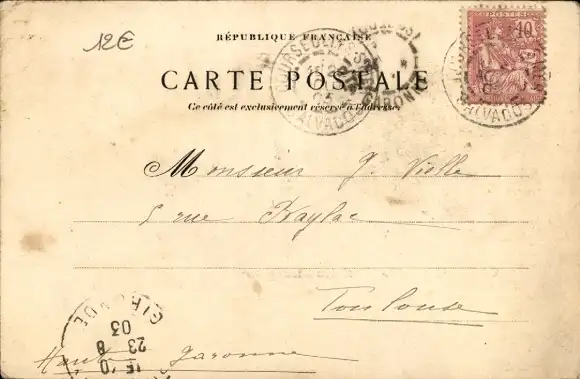 12€
RÉPUBLIQUE FRANÇAISE
CARTE POSTALE
Ce côté est exclusivement réservé à l'adresse
POSTES
10
COURSEULLES-S-MER
CALVADOS
CALVADOS
GARONNE
Monsieur J. Violle
5 rue Baylac
Toulouse
Haute Garonne
GIRONDE
15 10
23 8
03